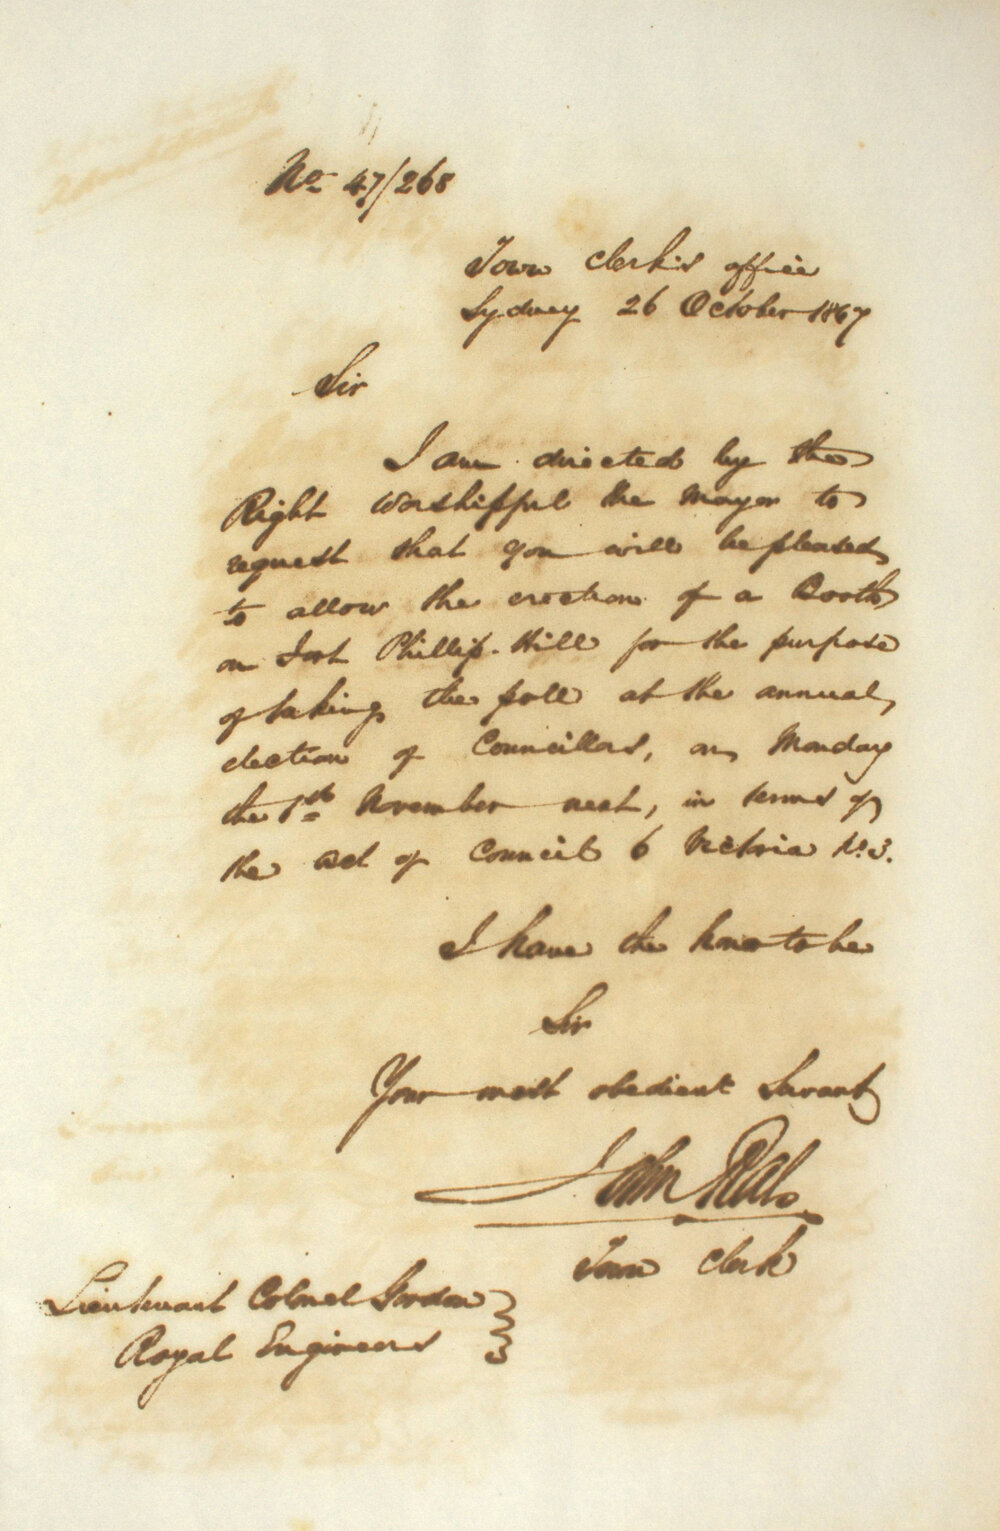 No 47/268
Town Clerk's office
Sydney 26 October 1847
Sir
I am directed by the
Right Worshipful the Mayor to
request that you will be pleased
to allow the erection of a Booth
on Fort Phillip Hill for the purpose
of taking the poll at the annual
election of Councillors, on Monday
the 1st November next, in terms of
the Act of Council 6 Victoria No 3.
I have the honor to be
Sir
Your most obedient Servant
John
Town Clerk
Lieutenant Colonel Gordon
Royal Engineers